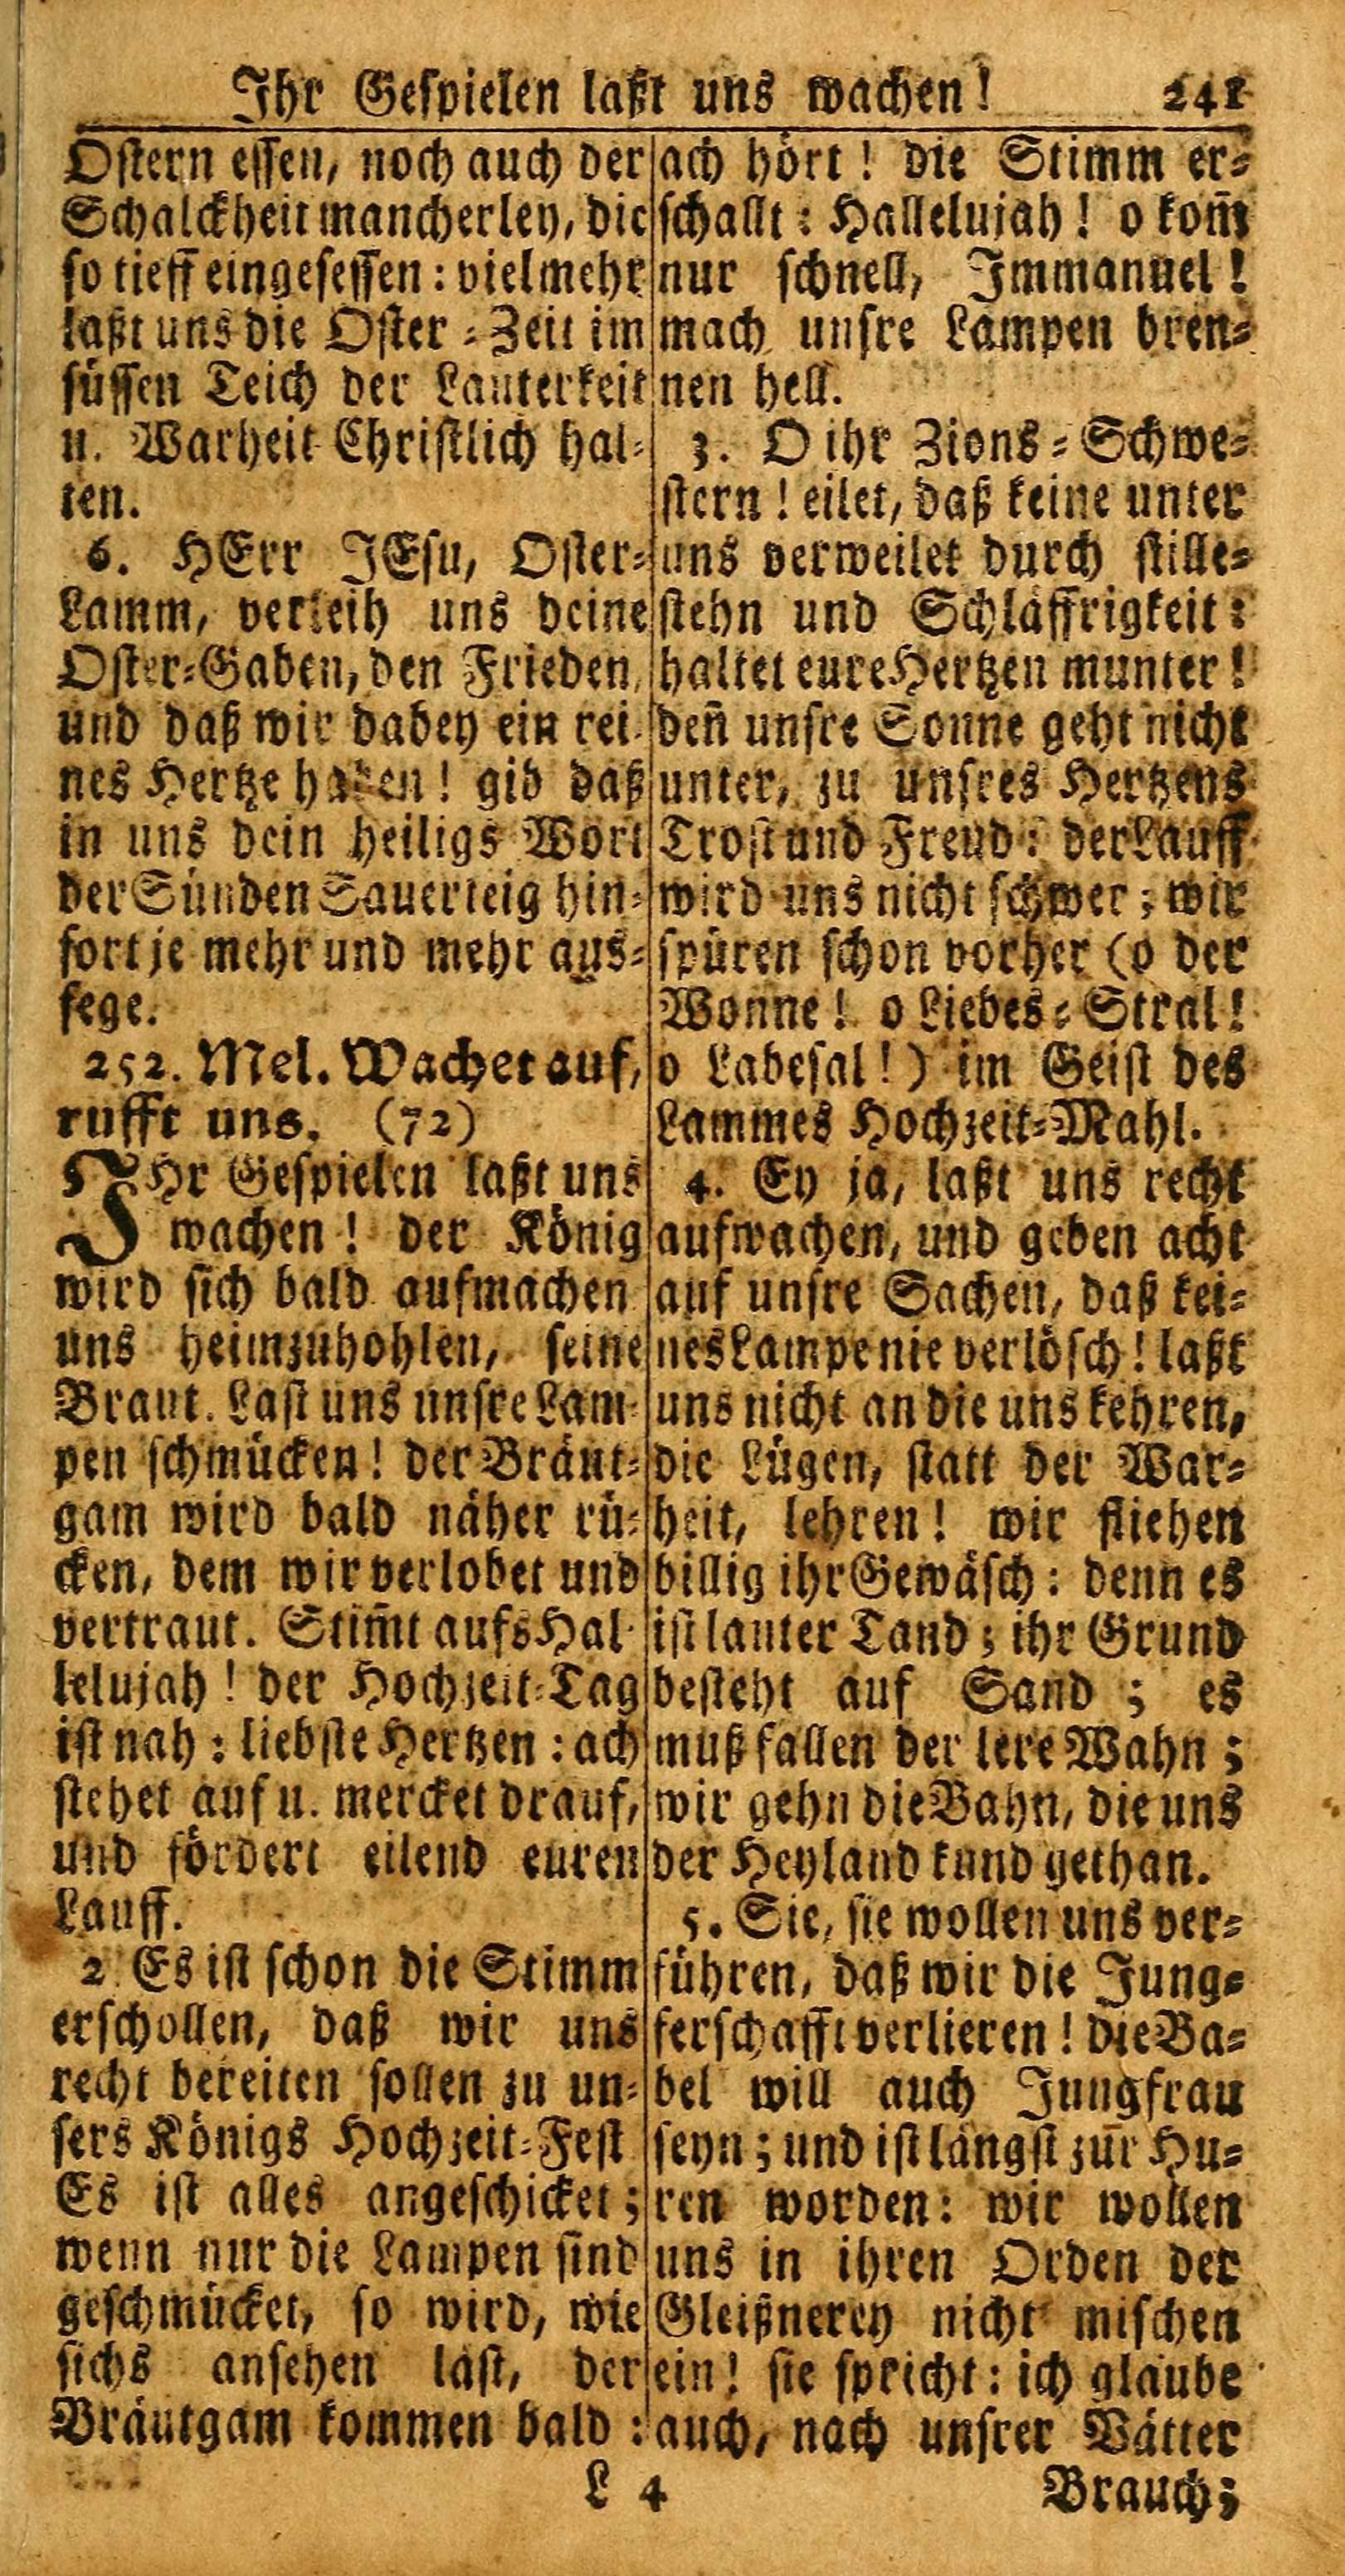 Ihr Gespielen laßt uns wachen! 241
Ostern essen, noch auch der
Schalckheit mancherley, die
so tieff eingesessen: vielmehr
laßt uns die Oster-Zeit im
süssen Teich der Lauterkeit
u. Warheit Christlich hal-
ten.
6. HErr JEsu, Oster-
Lamm, verleih uns deine
Oster-Gaben, den Frieden,
und daß wir dabey ein rei-
nes Hertze haben! gib daß
in uns dein heiligs Wort
der Sünden Sauerteig hin-
fort je mehr und mehr aus-
fege.
252. Mel. Wachet auf,
rufft uns. (72)
IHr Gespielen laßt uns
wachen! der König
wird sich bald aufmachen
uns heimzuhohlen, seine
Braut. Last uns unsre Lam-
pen schmücken! der Bräut-
gam wird bald näher rü-
cken, dem wir verlobet und
vertraut. Stim̄t aufs Hal-
lelujah! der Hochzeit-Tag
ist nah: liebste Hertzen: ach
stehet auf u. mercket drauf,
und fördert eilend euren
Lauff.
2 Es ist schon die Stimm
erschollen, daß wir uns
recht bereiten sollen zu un-
sers Königs Hochzeit-Fest
Es ist alles angeschicket;
wenn nur die Lampen sind
geschmücket, so wird, wie
sichs ansehen läst, der
Bräutgam kommen bald:
ach hört! die Stimm er-
schallt: Hallelujah! o kom̄t
nur schnell, Immanuel!
mach unsre Lampen bren-
nen hell.
3. O ihr Zions-Schwe-
stern! eilet, daß keine unter
uns verweilet durch stille-
stehn und Schläffrigkeit:
haltet eure Hertzen munter!
den̄ unsre Sonne geht nicht
unter, zu unsres Hertzens
Trost und Freud: der Lauff
wird uns nicht schwer; wir
spüren schon vorher (o der
Wonne! o Liebes-Stral!
o Labesal!) im Geist des
Lammes Hochzeit-Mahl.
4. Ey ja, laßt uns recht
aufwachen, und geben acht
auf unsre Sachen, daß kei-
nes Lampe nie verlösch! laßt
uns nicht an die uns kehren,
die Lügen, statt der War-
heit, lehren! wir fliehen
billig ihr Gewäsch: denn es
ist lauter Tand; ihr Grund
besteht auf Sand; es
muß fallen der lere Wahn;
wir gehn die Bahn, die uns
der Heyland kund gethan.
5. Sie, sie wollen uns ver-
führen, daß wir die Jung-
ferschafft verlieren! die Ba-
bel will auch Jungfrau
seyn; und ist längst zur Hu-
ren worden: wir wollen
uns in ihren Orden der
Gleißnerey nicht mischen
ein! sie spricht: ich glaube
auch, nach unsrer Vätter
L 4 Brauch;